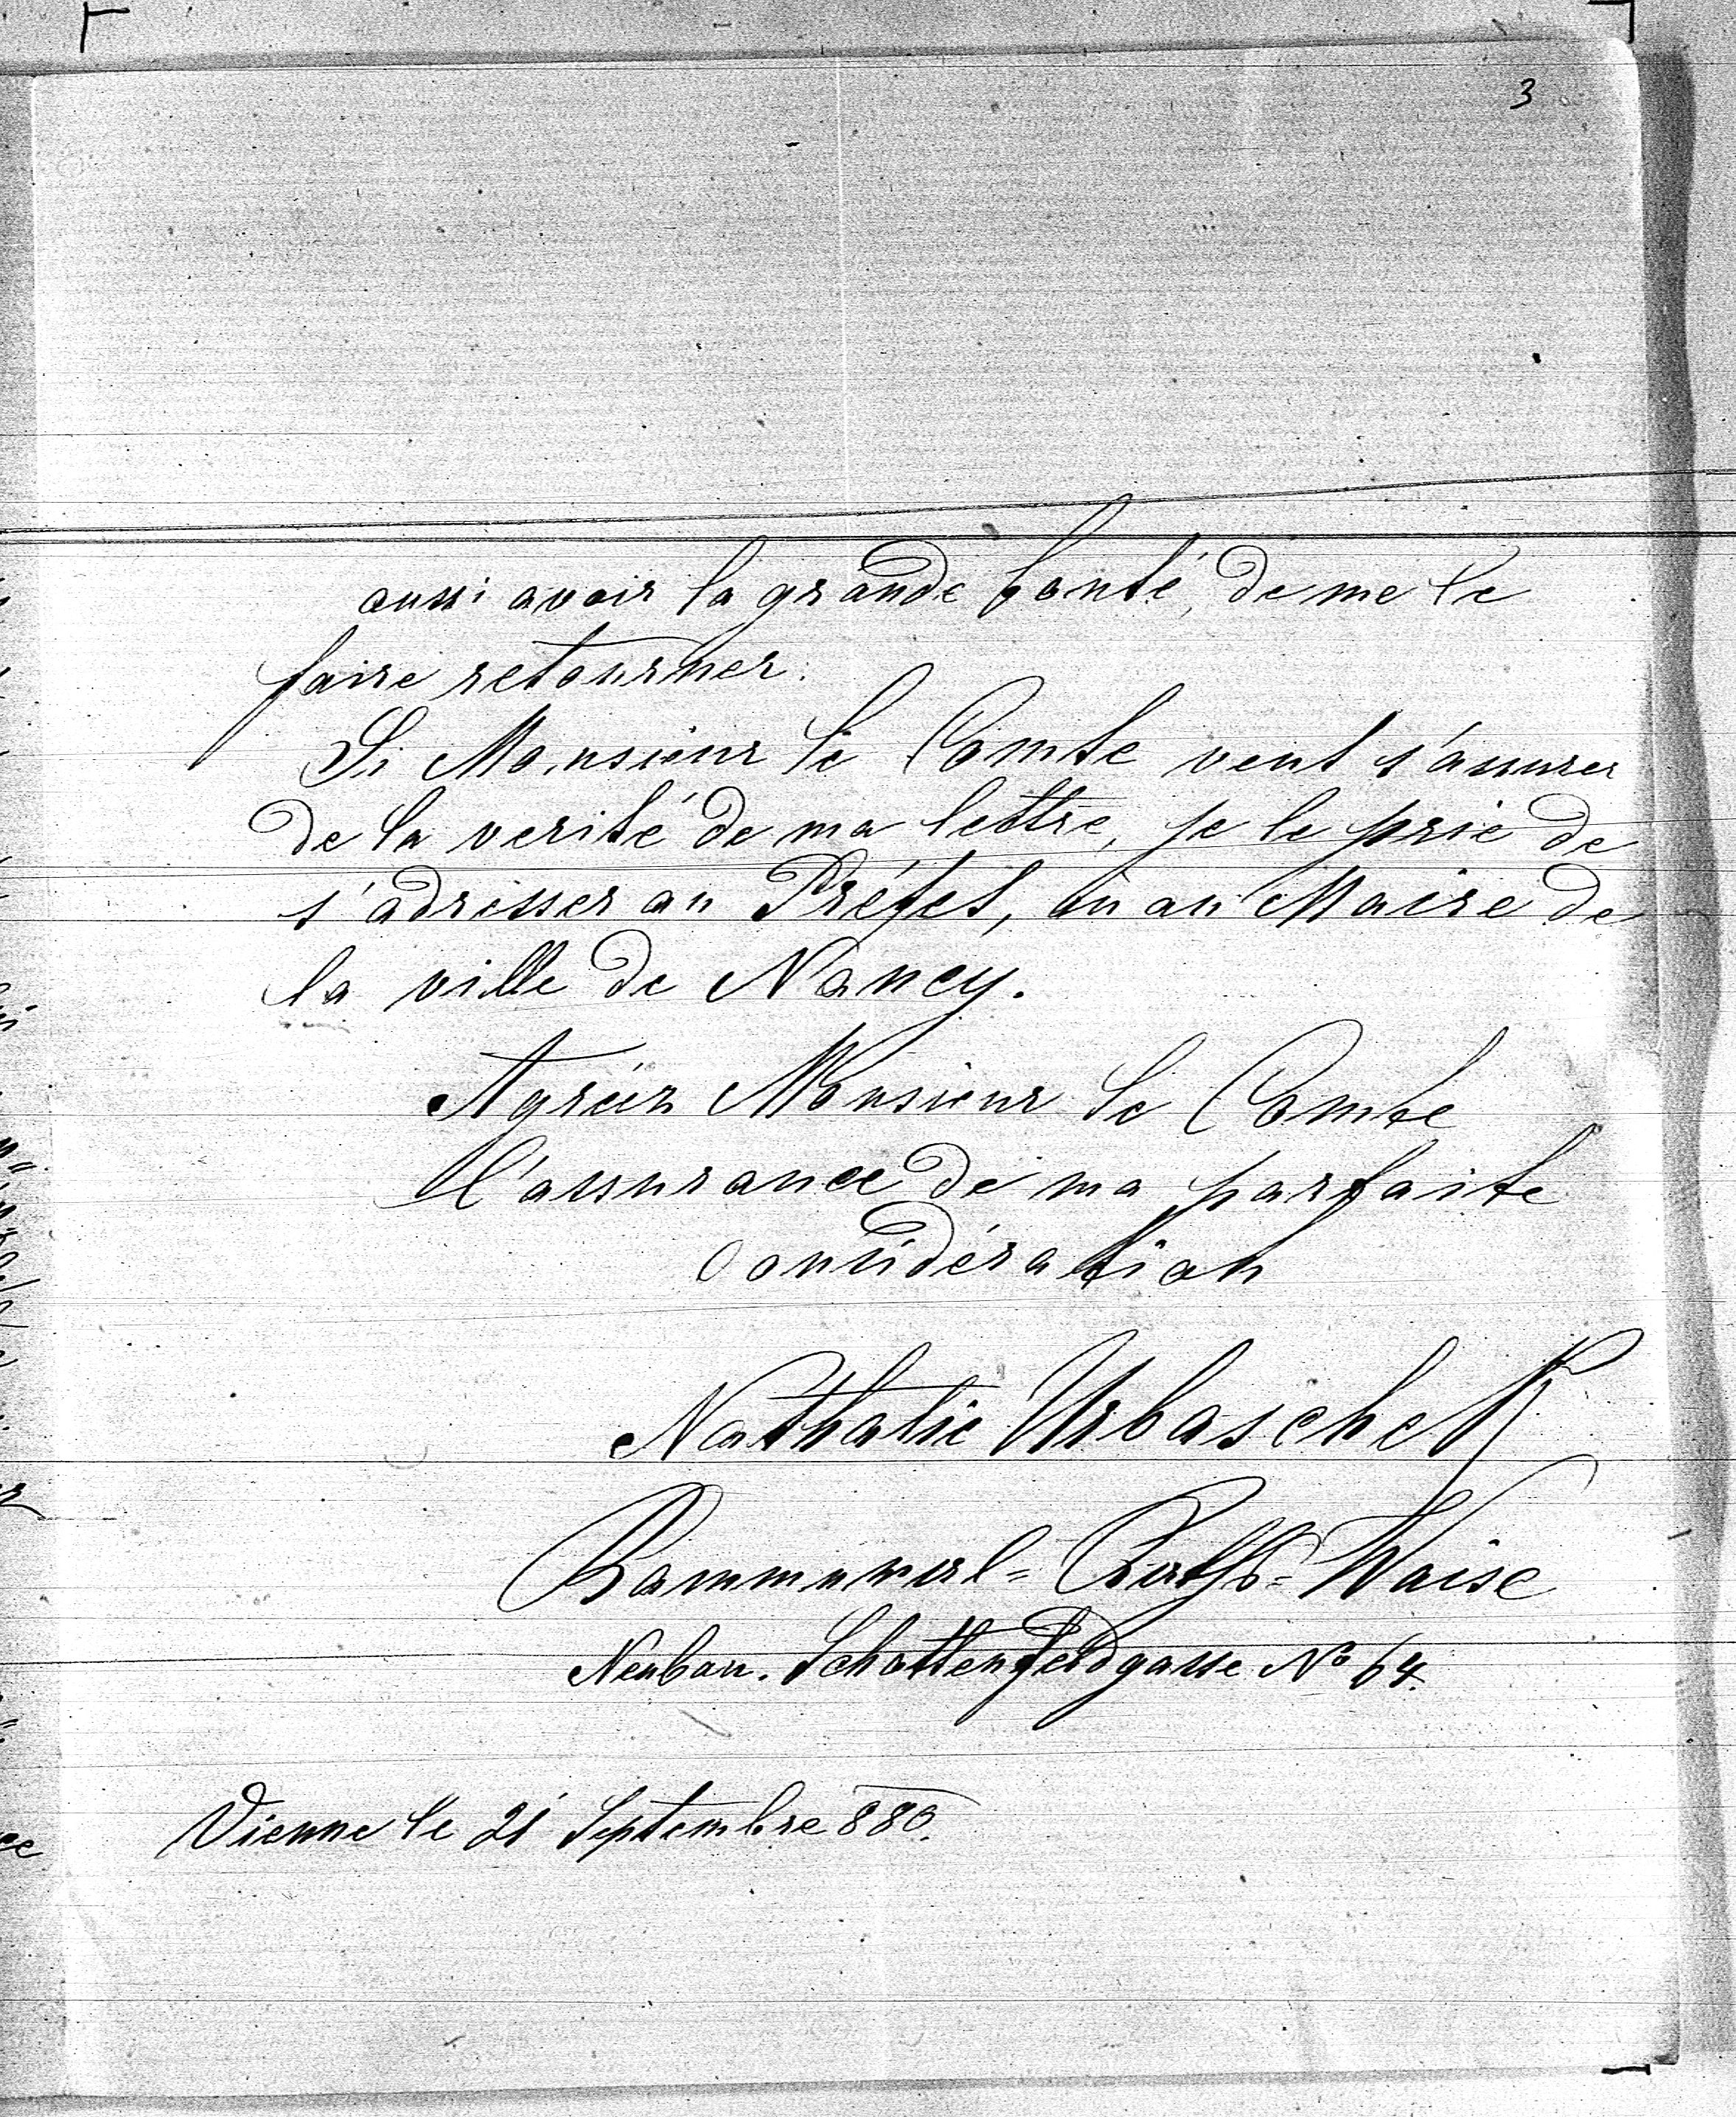 3
aussi avoir la grande bonté, de me le
faire retourner.
Si Monsieur le Comte veut s'assurer
de la verité de ma lettre, je le prie de
s'adresser au Préfet, ou au Maire de
la ville de Nancy.
Agréez Monsieur le Comte
l'assurance de ma parfaite
considération
Nathalie Urbaschek
Waise
Neubau. Schottenfeldgasse No 64.
Vienne le 21 Septembre 880.